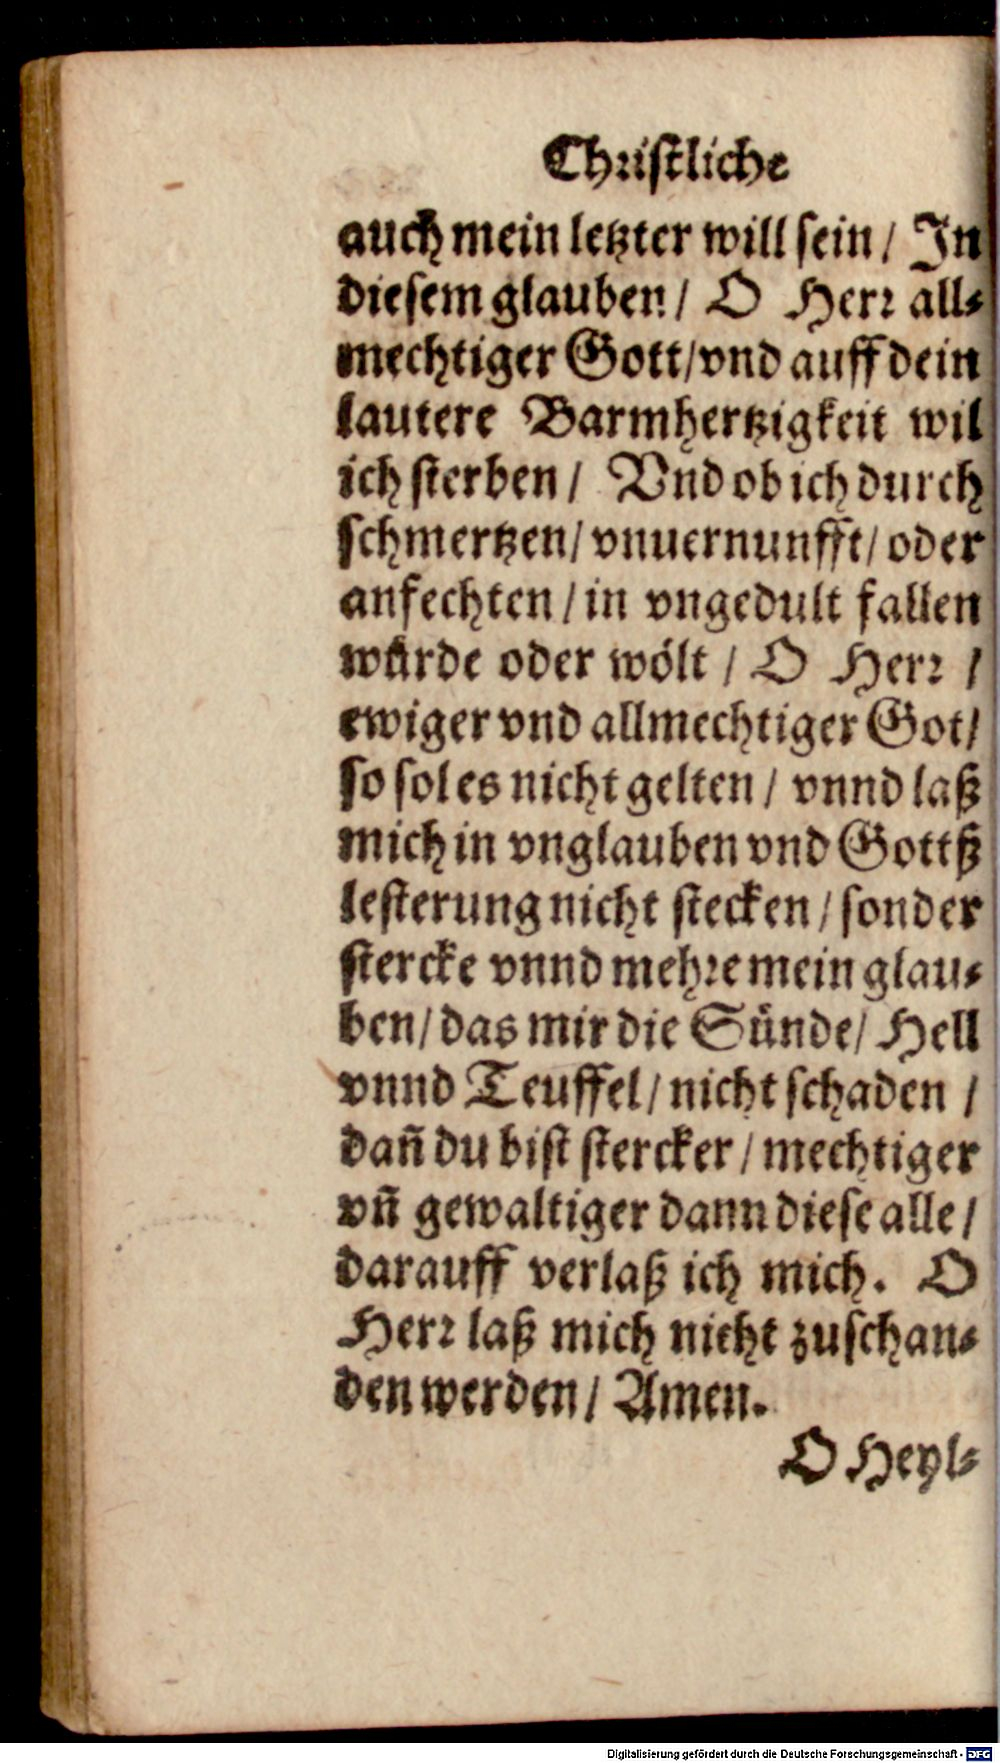 Christliche
auch mein letzter will sein / In
diesem glauben / O Herr all-
mechtiger Gott / vnd auff dein
lautere Barmhertzigkeit wil
ich sterben / Vnd ob ich durch
schmertzen / vnuernunfft / oder
anfechten / in vngedult fallen
wůrde oder wölt / O Herr /
ewiger vnd allmechtiger Got /
so sol es nicht gelten / vnnd laß
mich in vnglauben vnd Gottß
lesterung nicht stecken / sonder
stercke vnnd mehre mein glau-
ben / das mir die Sünde / Hell
vnnd Teuffel / nicht schaden /
dañ du bist stercker / mechtiger
vñ gewaltiger dann diese alle /
darauff verlaß ich mich. O
Herr laß mich nicht zuschan-
den werden / Amen.
O Heyl-
Digitalisierung gefördert durch die Deutsche Forschungsgemeinschaft - DFG